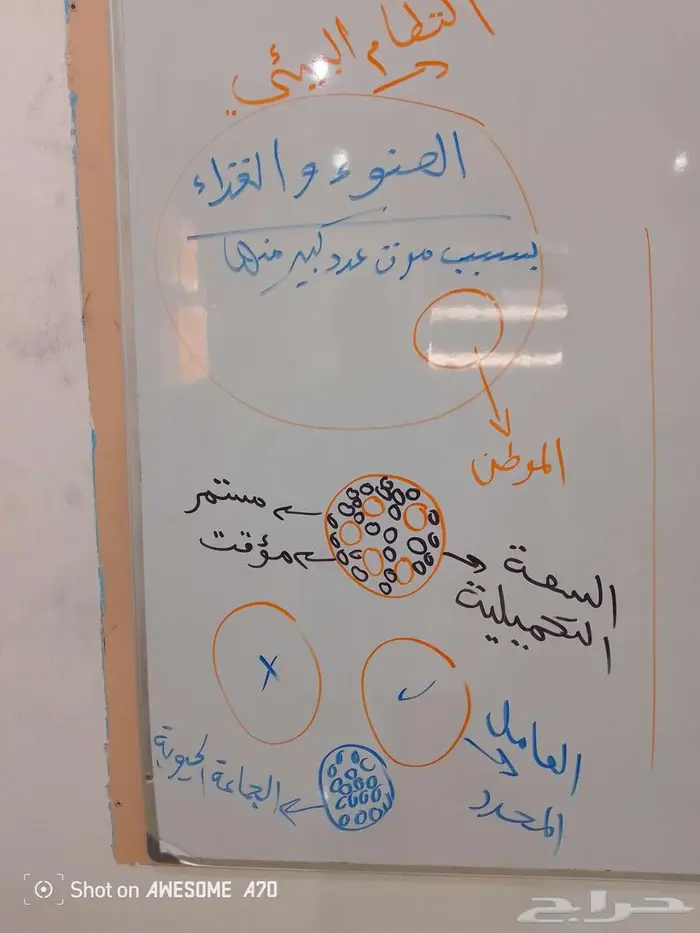 النظام البيئي
الضوء والغذاء
بسبب موت عدد كبير منها
الموطن
مستمر
مؤقت
السعة
التحميلية
العامل
المحدد
الجماعة الحيوية
Shot on AWESOME A70
حراج